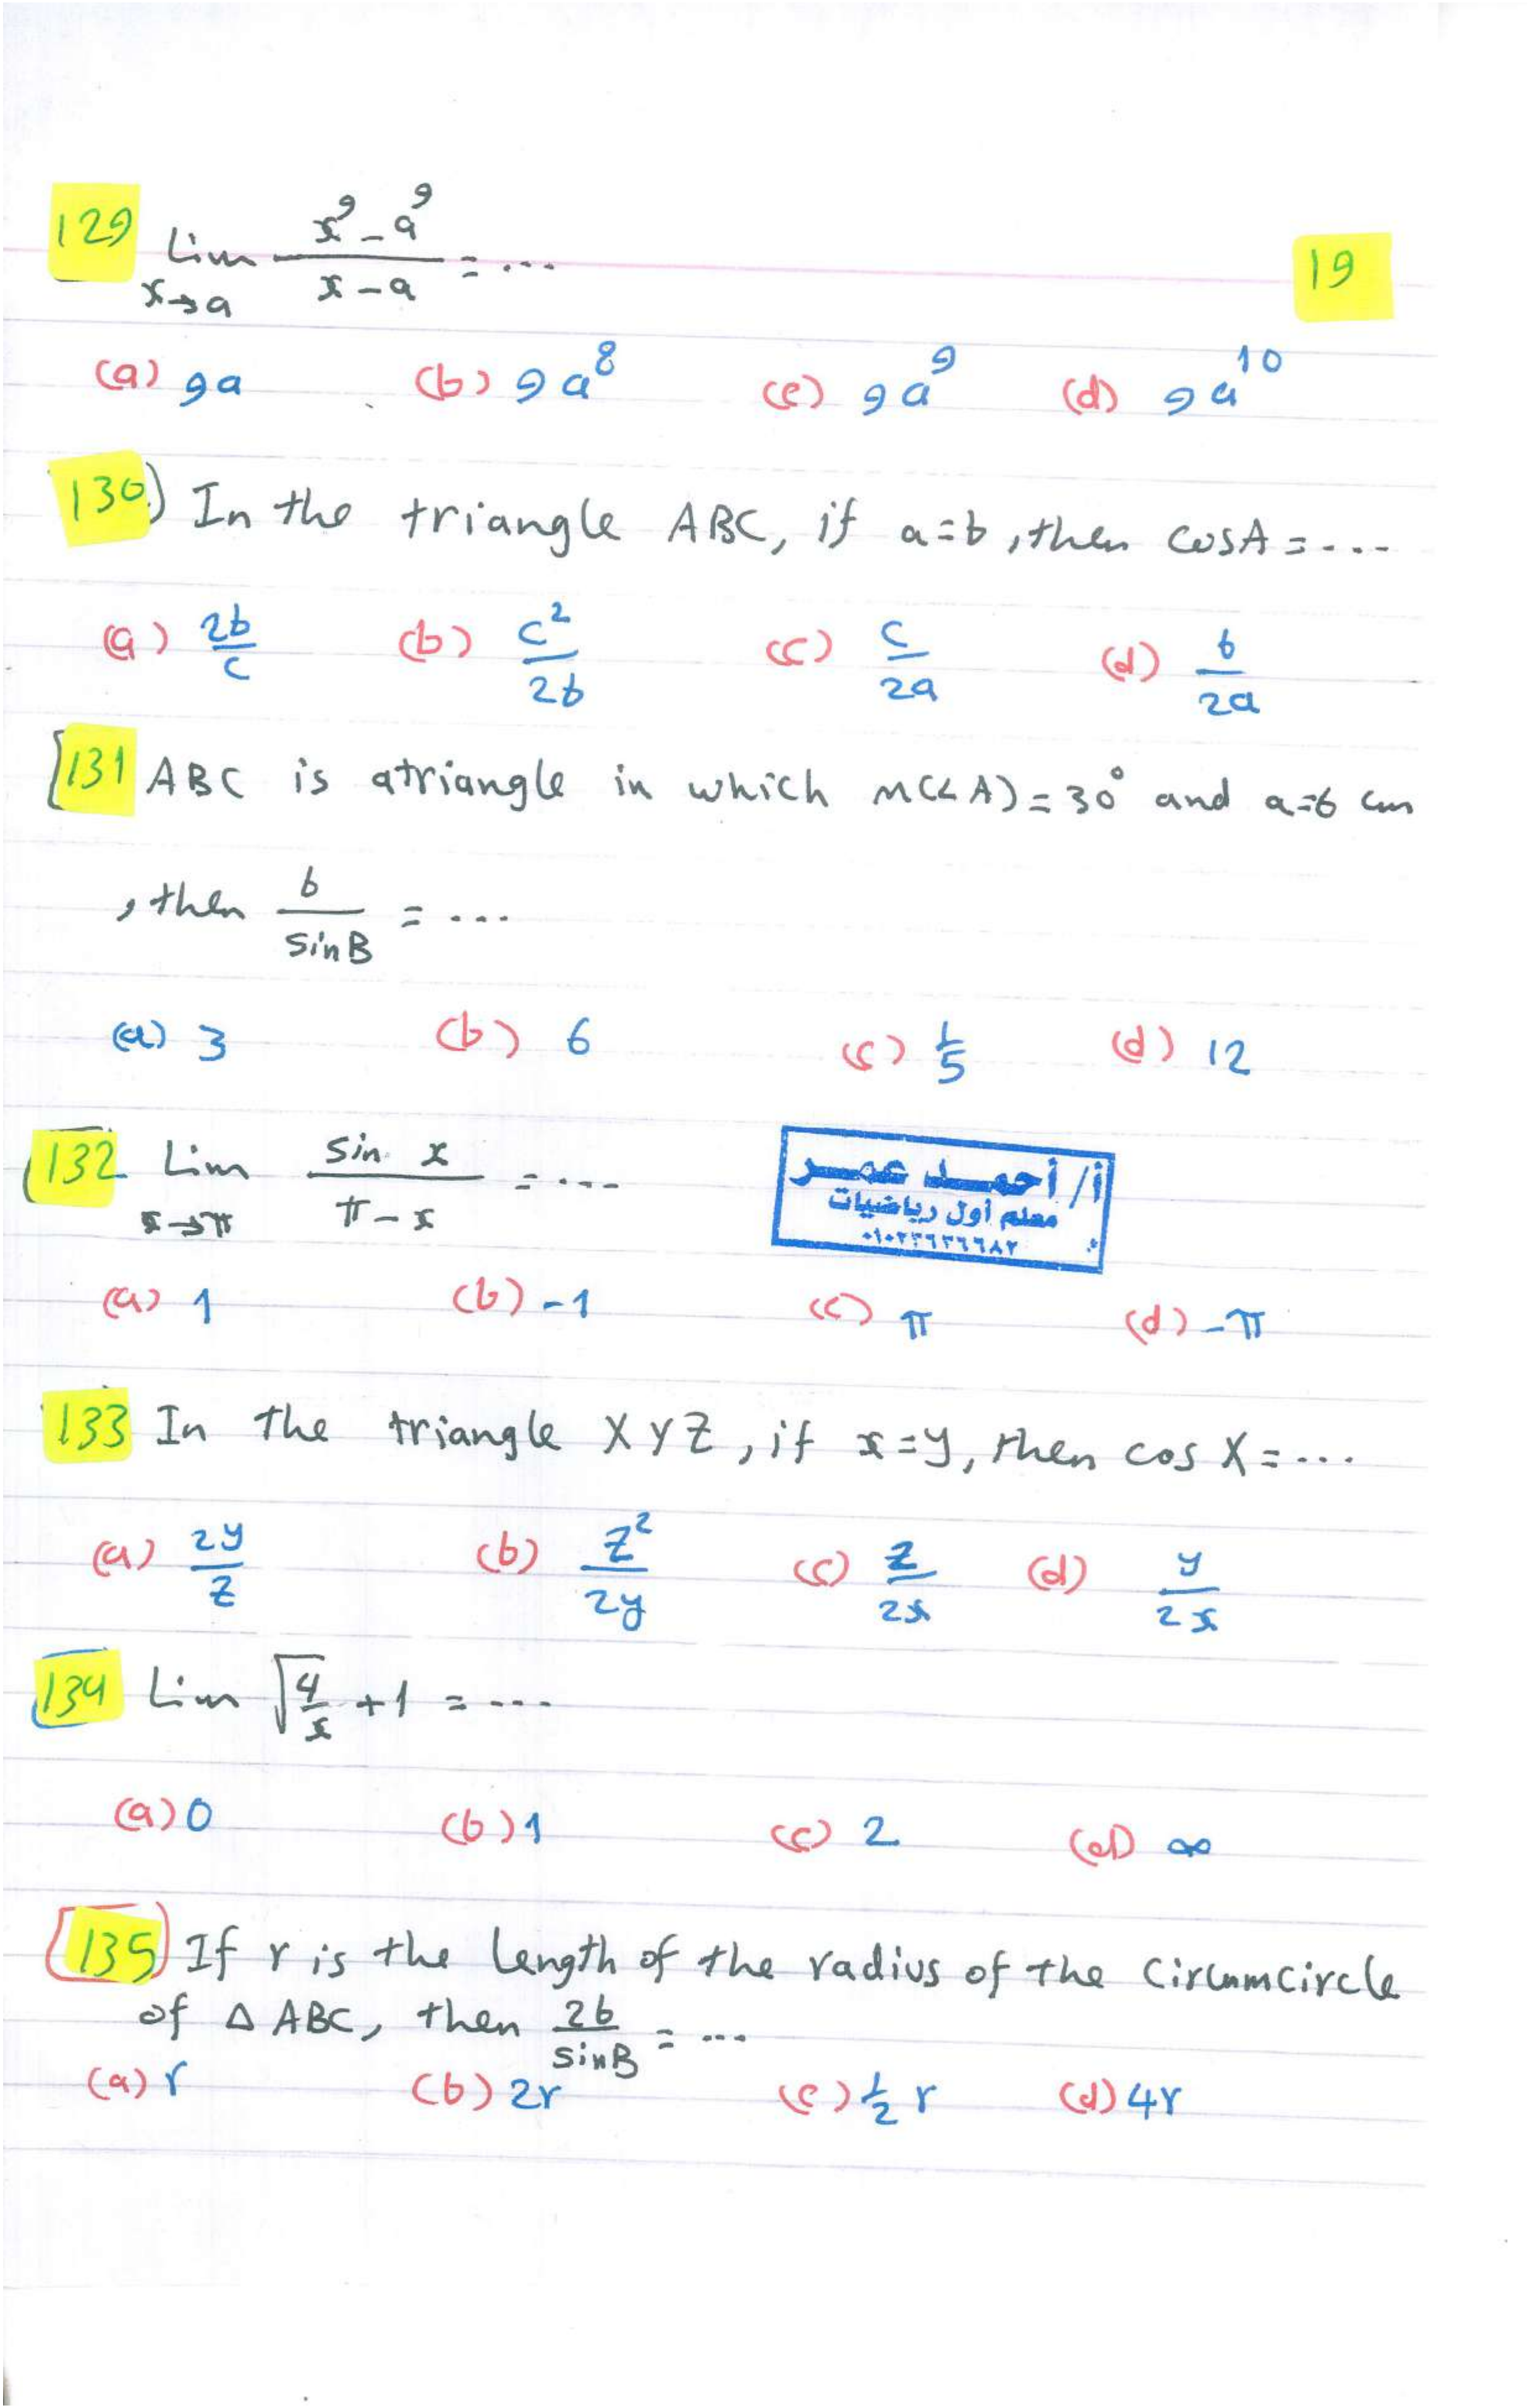 129 Lim x→a (x⁹ - a⁹)/(x - a) = ...
19
(a) 9a (b) 9a⁸ (c) 9a⁹ (d) 9a¹⁰
130) In the triangle ABC, if a=b, then cosA = ....
(a) 2b/c (b) c²/2b (c) c/2a (d) b/2a
131 ABC is atriangle in which m(∠A) = 30° and a=6 cm
, then b/sinB = ....
(a) 3 (b) 6 (c) 1/5 (d) 12
132 Lim x→π sin x/(π - x) = ....
أ/ أحمد عمر
معلم أول رياضيات
(a) 1 (b) -1 (c) π (d) -π
133 In the triangle XYZ, if x=y, then cos X = ...
(a) 2y/z (b) z²/2y (c) z/2x (d) y/2x
134 Lim √(4/x) + 1 = ....
(a) 0 (b) 1 (c) 2 (d) ∞
135) If r is the length of the radius of the circumcircle
of △ ABC, then 2b/sinB = ...
(a) r (b) 2r (c) 1/2 r (d) 4r